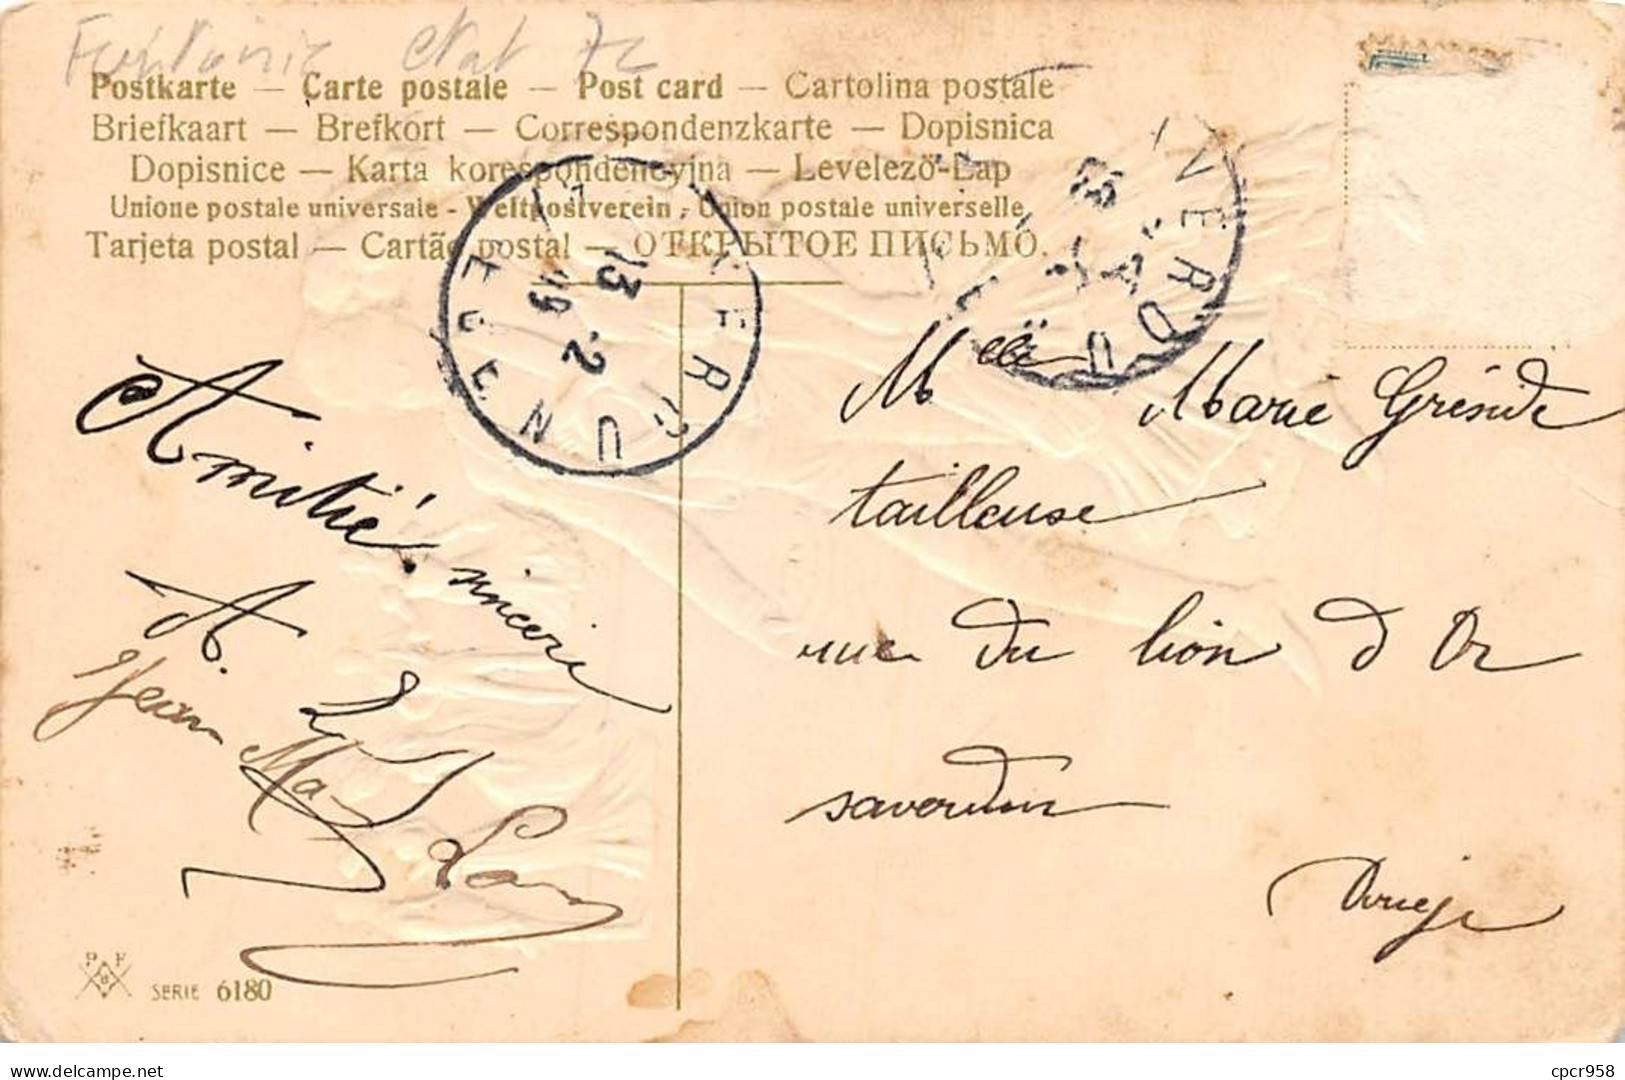 Postkarte — Carte postale — Post card — Cartolina postale
Briefkaart — Brefkort — Correspondenzkarte — Dopisnica
Dopisnice — Karta korespondencyjna — Levelező-Lap
Unione postale universale - Weltpostverein - Union postale universelle
Tarjeta postal — Cartão postal — ОТКРЫТОЕ ПИСЬМО.
13
19 2
VERDU
Amitié sincère
A.
Jean
Melle Marie
tailleuse
rue du lion d Or
saverdun
Ariège
P F
SERIE 6180
cpcr958